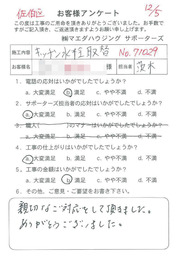 佐伯区
12/5
お客様アンケート
この度は工事のご用命を頂きありがとうございました。お手数で
すがご記入頂き、ご返送頂きますようお願い申し上げます。
㈱マエダハウジング サポーターズ
工事内容 キッチン水栓取替 No.71029
お名前 様 担当者 茨木
1. 電話の応対はいかがでしたでしょうか?
a.大変満足 b.満足 c.やや不満 d.不満
2. サポーターズ担当者の応対はいかがでしたでしょうか?
a.大変満足 b.満足 c.やや不満 d.不満
3. 職人の はいかがでしたでしょうか?
a.大変満足 b.満足 c.やや不満 d.不満
4. 工事の仕上がりはいかがでしたでしょうか?
a.大変満足 b.満足 c.やや不満 d.不満
5. 工事金額はいかがでしたでしょうか?
a.大変満足 b.満足 c.やや不満 d.不満
6. その他、ご意見・ご要望をお書き下さい。
親切なご対応をして頂きました。
ありがとうございました。